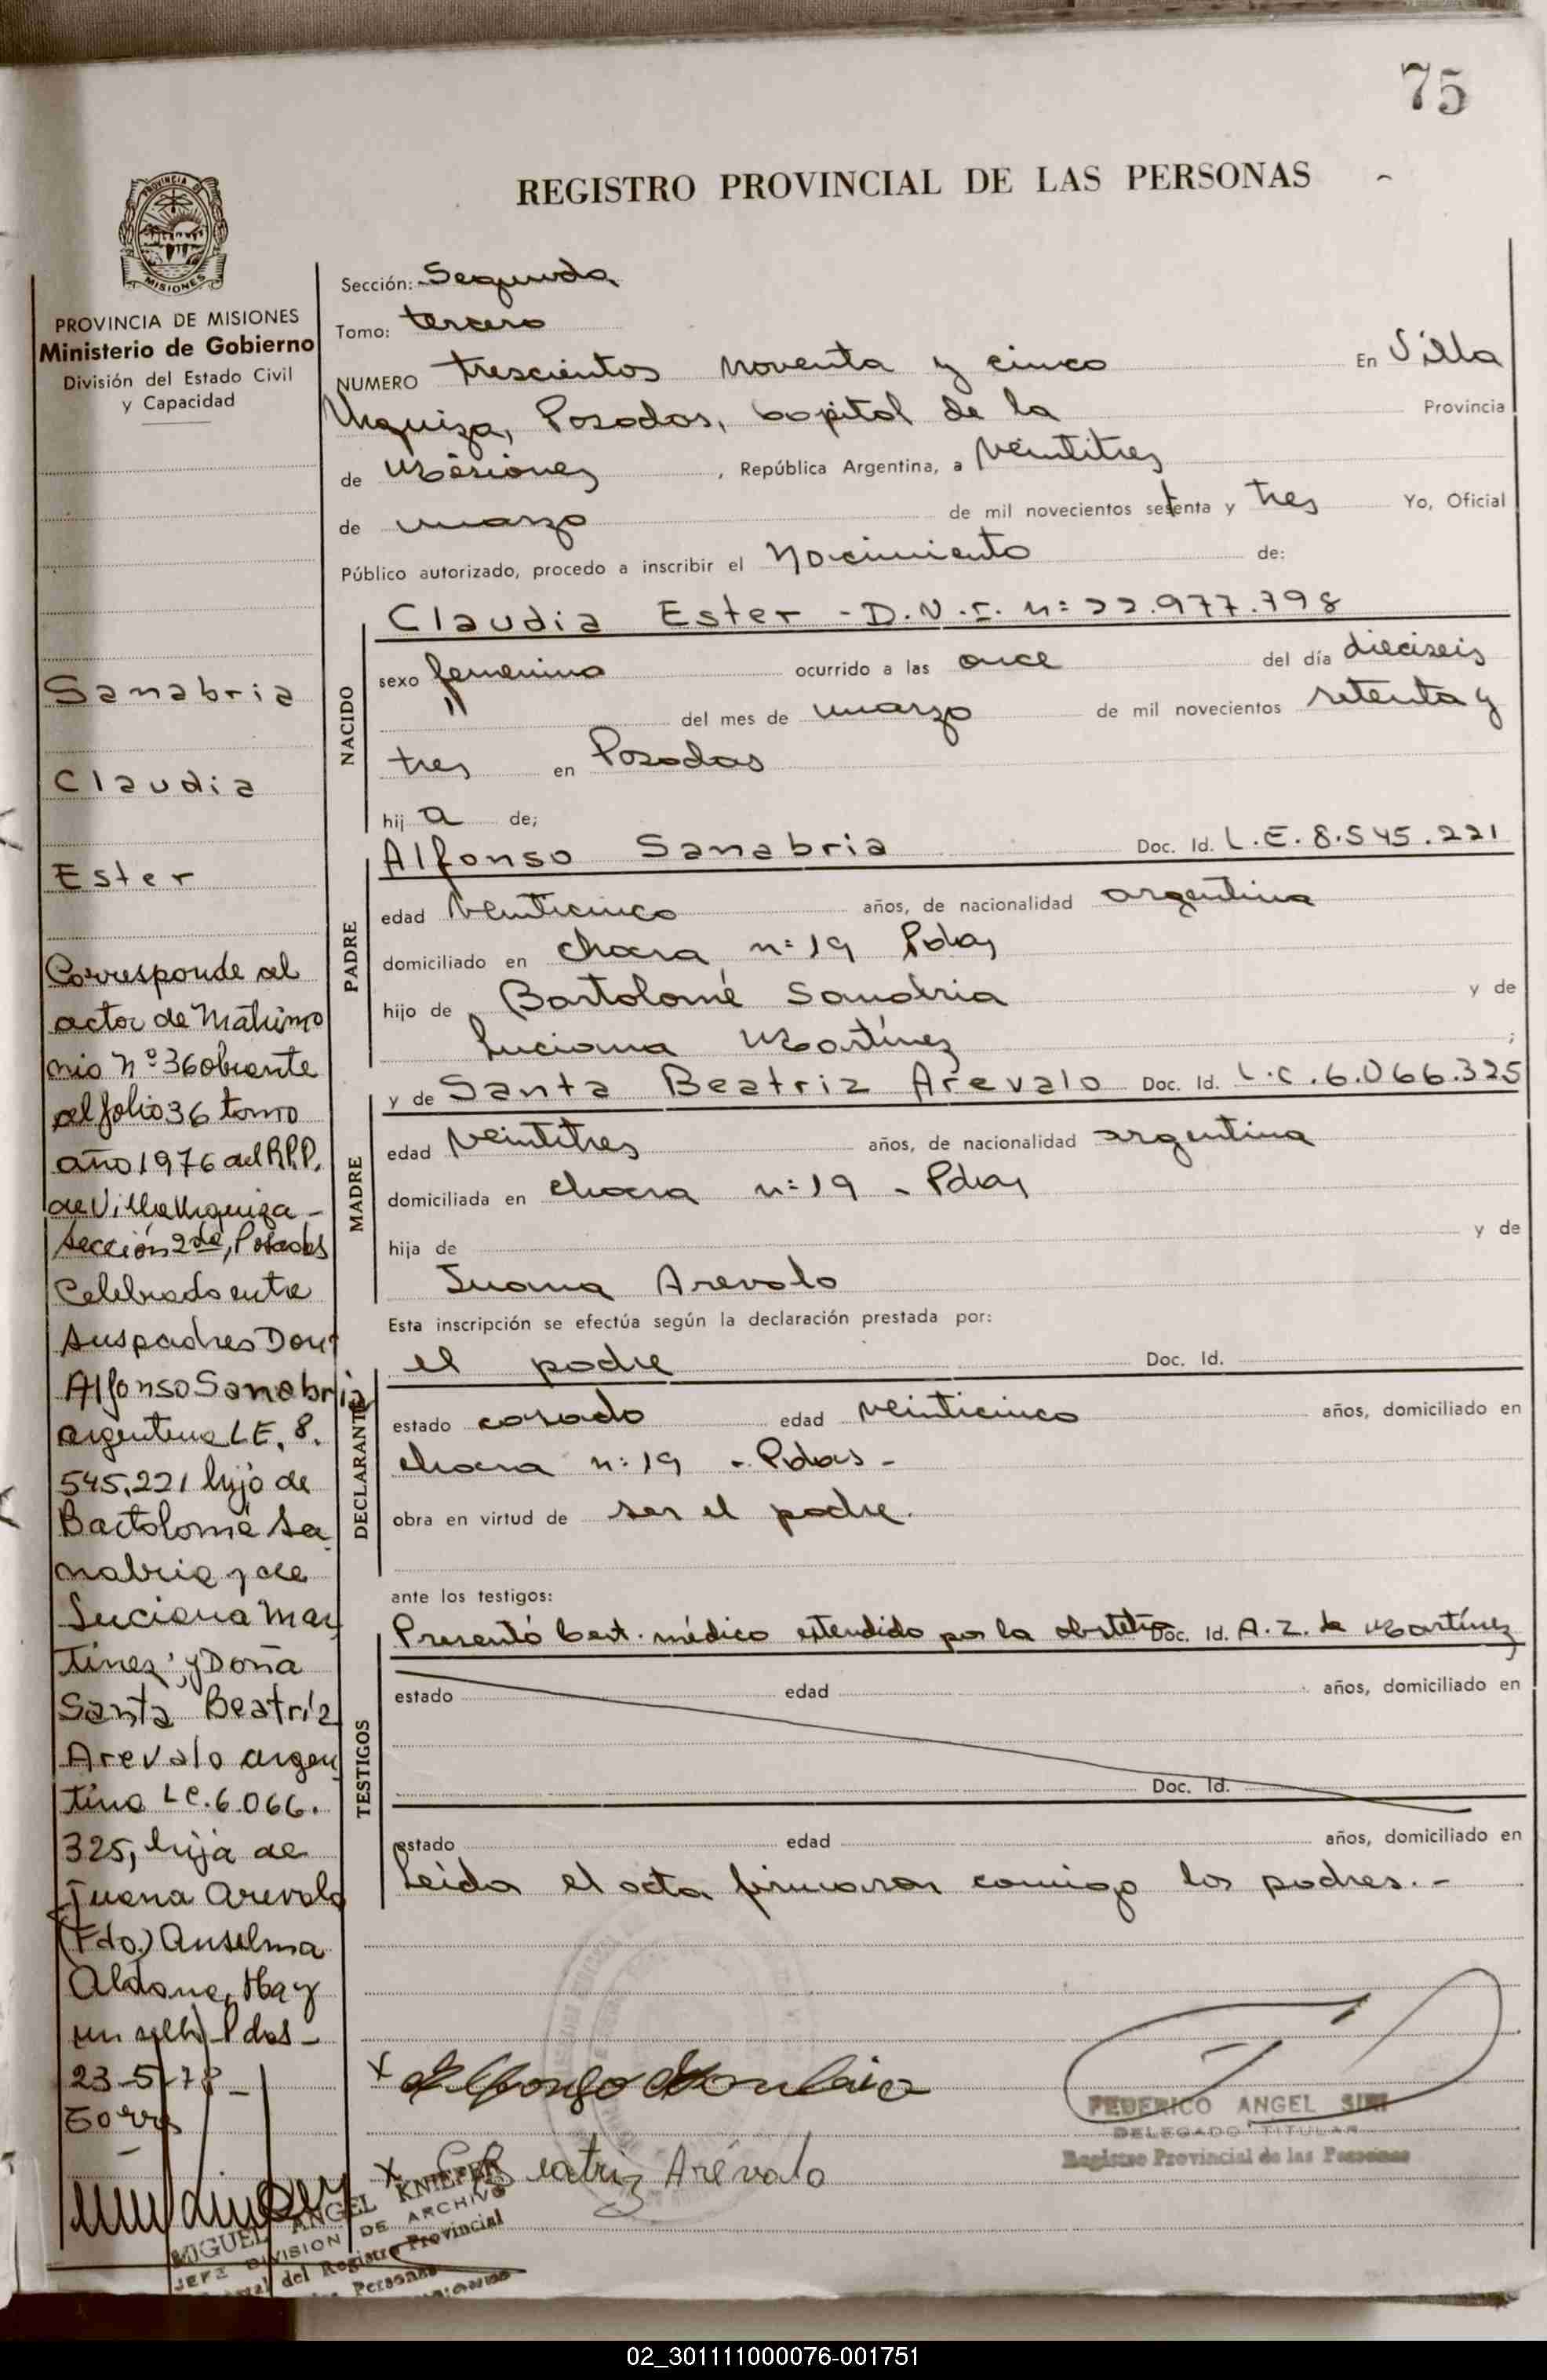 75
REGISTRO PROVINCIAL DE LAS PERSONAS
PROVINCIA DE
MISIONES
PROVINCIA DE MISIONES
Ministerio de Gobierno
División del Estado Civil
y Capacidad
Sanabria
Claudia
Ester
Corresponde al
actor de Matrimo
nio nº 36 obrante
al folio 36 tomo
año 1976 del R.P.P.
de Villa Urquiza -
Sección 2da, Posadas
Celebrado entre
sus padres Don:
Alfonso Sanabria
argentino L.E. 8.
545.221 hijo de
Bartolomé Sa
nabria y de
Luciana Mar
tínez; y Doña
Santa Beatríz
Arevalo argen
tina L.C. 6.066.
325, hija de
Juana Arevalo
(Fdo.) Anselma
Aldana, Hay
un sello) Pdas -
23-5-78 -
MIGUEL ANGEL KNIEFER
JEFE DIVISION DE ARCHIVO
del Registro Provincial
Personas
Sección: Segunda
Tomo: tercero
NUMERO trescientos noventa y cinco En Villa
Urquiza, Posadas, capital de la Provincia
de Misiones, República Argentina, a veintitres
de marzo de mil novecientos setenta y tres Yo, Oficial
Público autorizado, procedo a inscribir el nacimiento de:
NACIDO
Claudia Ester - D.N.I. n: 22.977.798
sexo femenino ocurrido a las once del día dieciseis
" del mes de marzo de mil novecientos setenta y
tres en Posadas
hij a de;
PADRE
Alfonso Sanabria Doc. Id. L.E. 8.545.221
edad veinticinco años, de nacionalidad argentina
domiciliado en chacra n: 19 Pdas
hijo de Bartolomé Sanabria y de
Luciana Martínez ;
MADRE
y de Santa Beatriz Arevalo Doc. Id. L.C. 6.066.325
edad veintitres años, de nacionalidad argentina
domiciliada en chacra n: 19 - Pdas
hija de y de
Juana Arevalo
Esta inscripción se efectúa según la declaración prestada por:
DECLARANTE
el padre Doc. Id.
estado casado edad veinticinco años, domiciliado en
chacra n: 19 - Pdas -
obra en virtud de ser el padre.
ante los testigos:
TESTIGOS
Presentó Cert. médico extendido por la obstetra Doc. Id. A. Z. de Martínez
estado edad años, domiciliado en
Doc. Id.
estado edad años, domiciliado en
Leída el acta firmaron conmigo los padres. -
x Alfonso Sanabria
x Beatriz Arévalo
FEDERICO ANGEL SIRI
DELEGADO TITULAR
Registro Provincial de las Personas
02_301111000076-001751